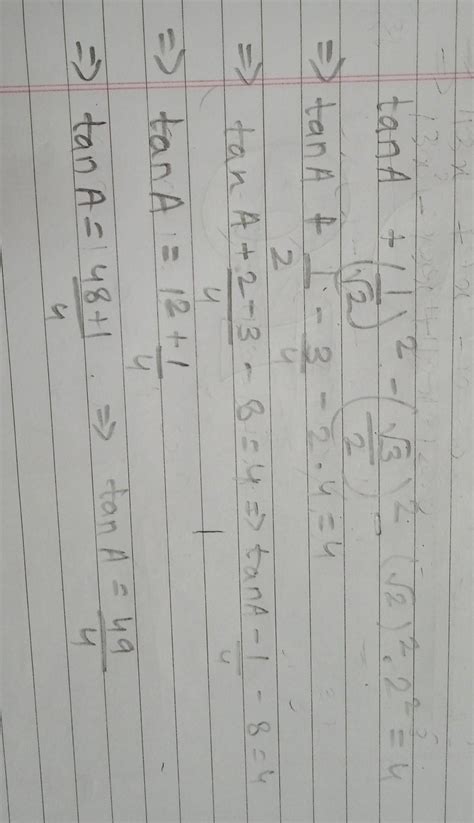 tan A + (1/√2)² - (√3/2)² - (√2)².2² = 4
⇒ tan A + 1/2 - 3/4 - 2.4 = 4
⇒ tan A + 2-3/4 - 8 = 4 ⇒ tan A - 1/4 - 8 = 4
⇒ tan A = 12 + 1/4
⇒ tan A = 48+1/4 ⇒ tan A = 49/4